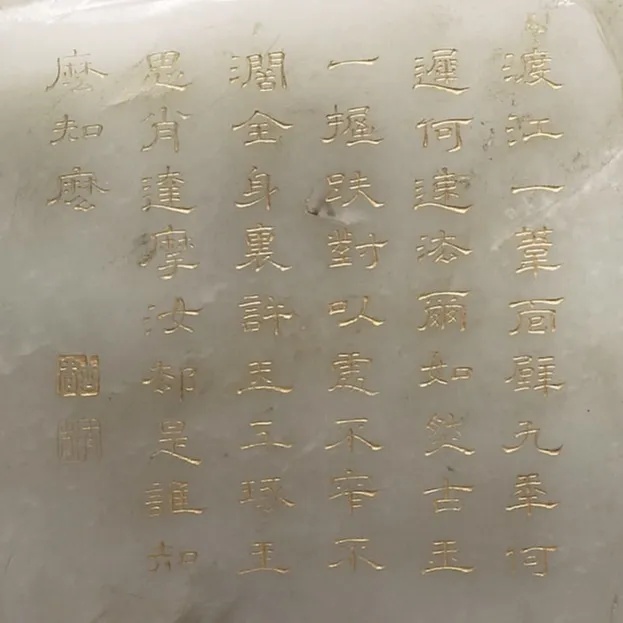 渡江一葦面壁九年何
遲何速法爾如然古玉
一握趺對以不窄不
濶全身裏許玉工琢玉
思肖達摩汝都是誰知
麼知麼